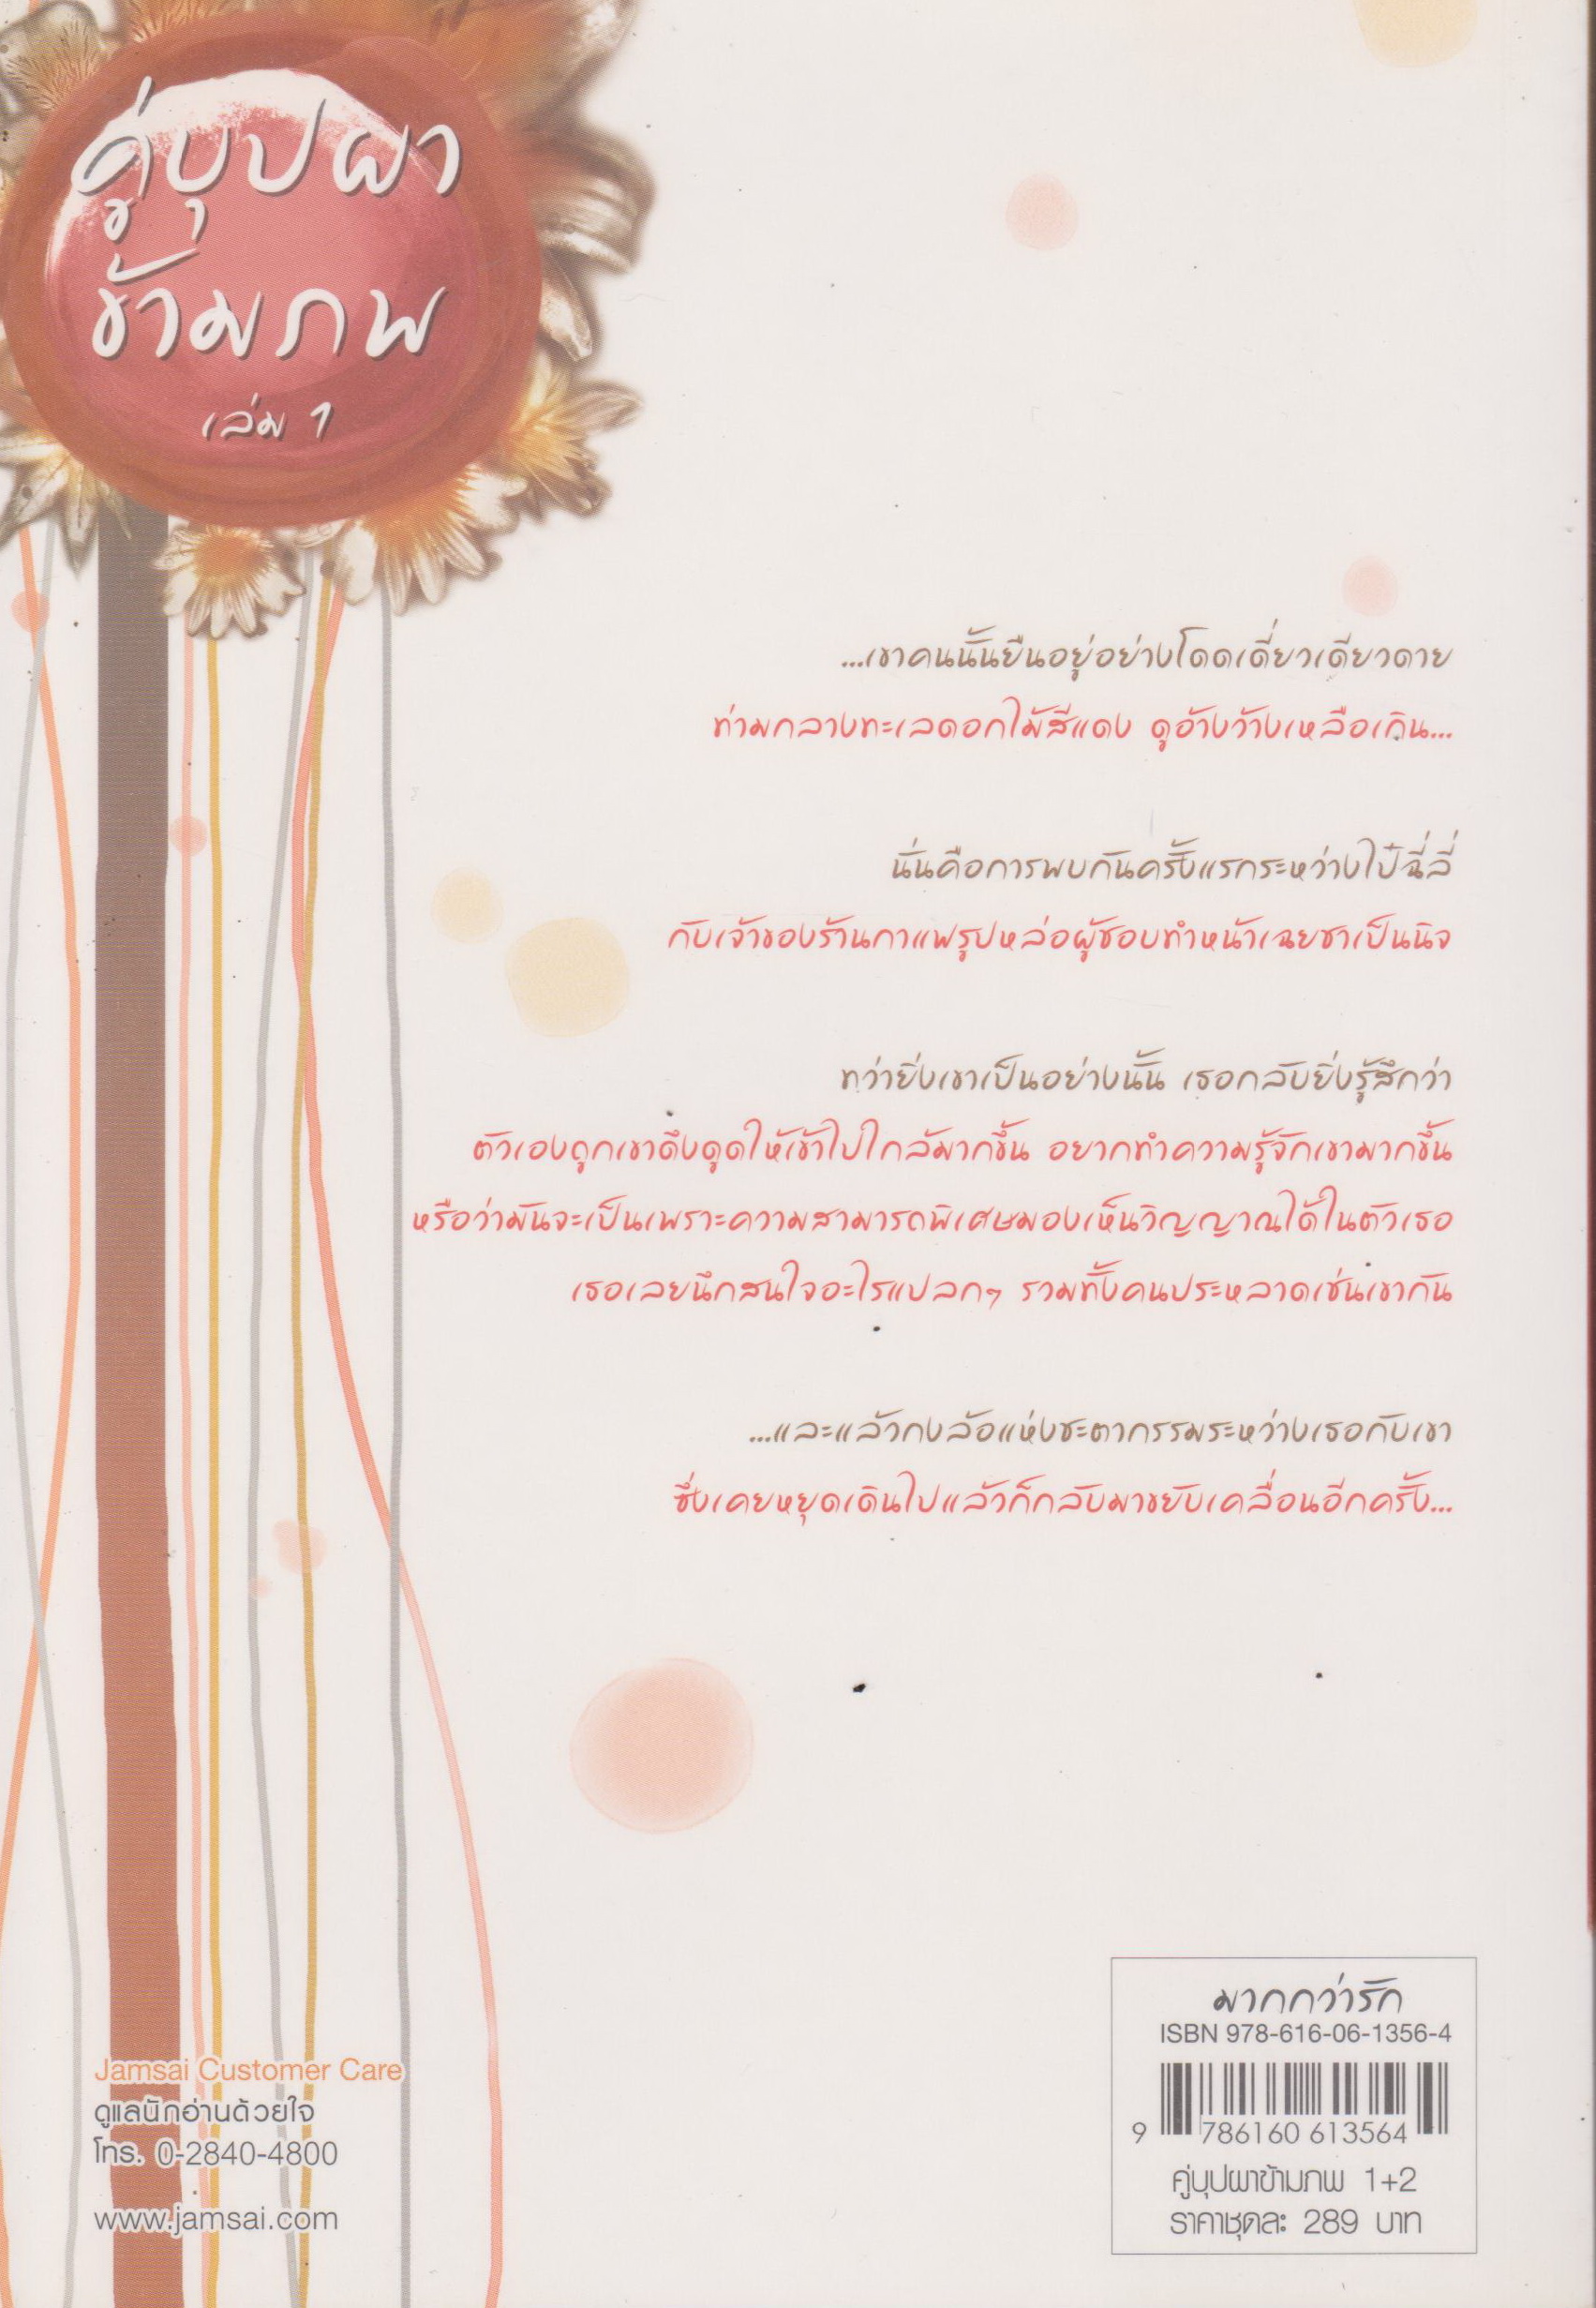 คู่บุปผา
ข้ามภพ
เล่ม 1
...เขาคนนั้นยืนอยู่อย่างโดดเดี่ยวเดียวดาย
ท่ามกลางทะเลดอกไม้สีแดง ดูอ้างว้างเหลือเกิน...
นั่นคือการพบกันครั้งแรกระหว่างไป๋ฉี่ลี่
กับเจ้าของร้านกาแฟรูปหล่อผู้ชอบทำหน้าเฉยชาเป็นนิจ
ทว่ายิ่งเขาเป็นอย่างนั้น เธอกลับยิ่งรู้สึกว่า
ตัวเองถูกเขาดึงดูดให้เข้าไปใกล้มากขึ้น อยากทำความรู้จักเขามากขึ้น
หรือว่ามันจะเป็นเพราะความสามารถพิเศษมองเห็นวิญญาณได้ในตัวเธอ
เธอเลยนึกสนใจอะไรแปลกๆ รวมทั้งคนประหลาดเช่นเขากัน
...และแล้วกงล้อแห่งชะตากรรมระหว่างเธอกับเขา
ซึ่งเคยหยุดเดินไปแล้วก็กลับมาขยับเคลื่อนอีกครั้ง...
มากกว่ารัก
ISBN 978-616-06-1356-4
9 786160 613564
คู่บุปผาข้ามภพ 1+2
ราคาชุดละ 289 บาท
Jamsai Customer Care
ดูแลนักอ่านด้วยใจ
โทร. 0-2840-4800
www.jamsai.com